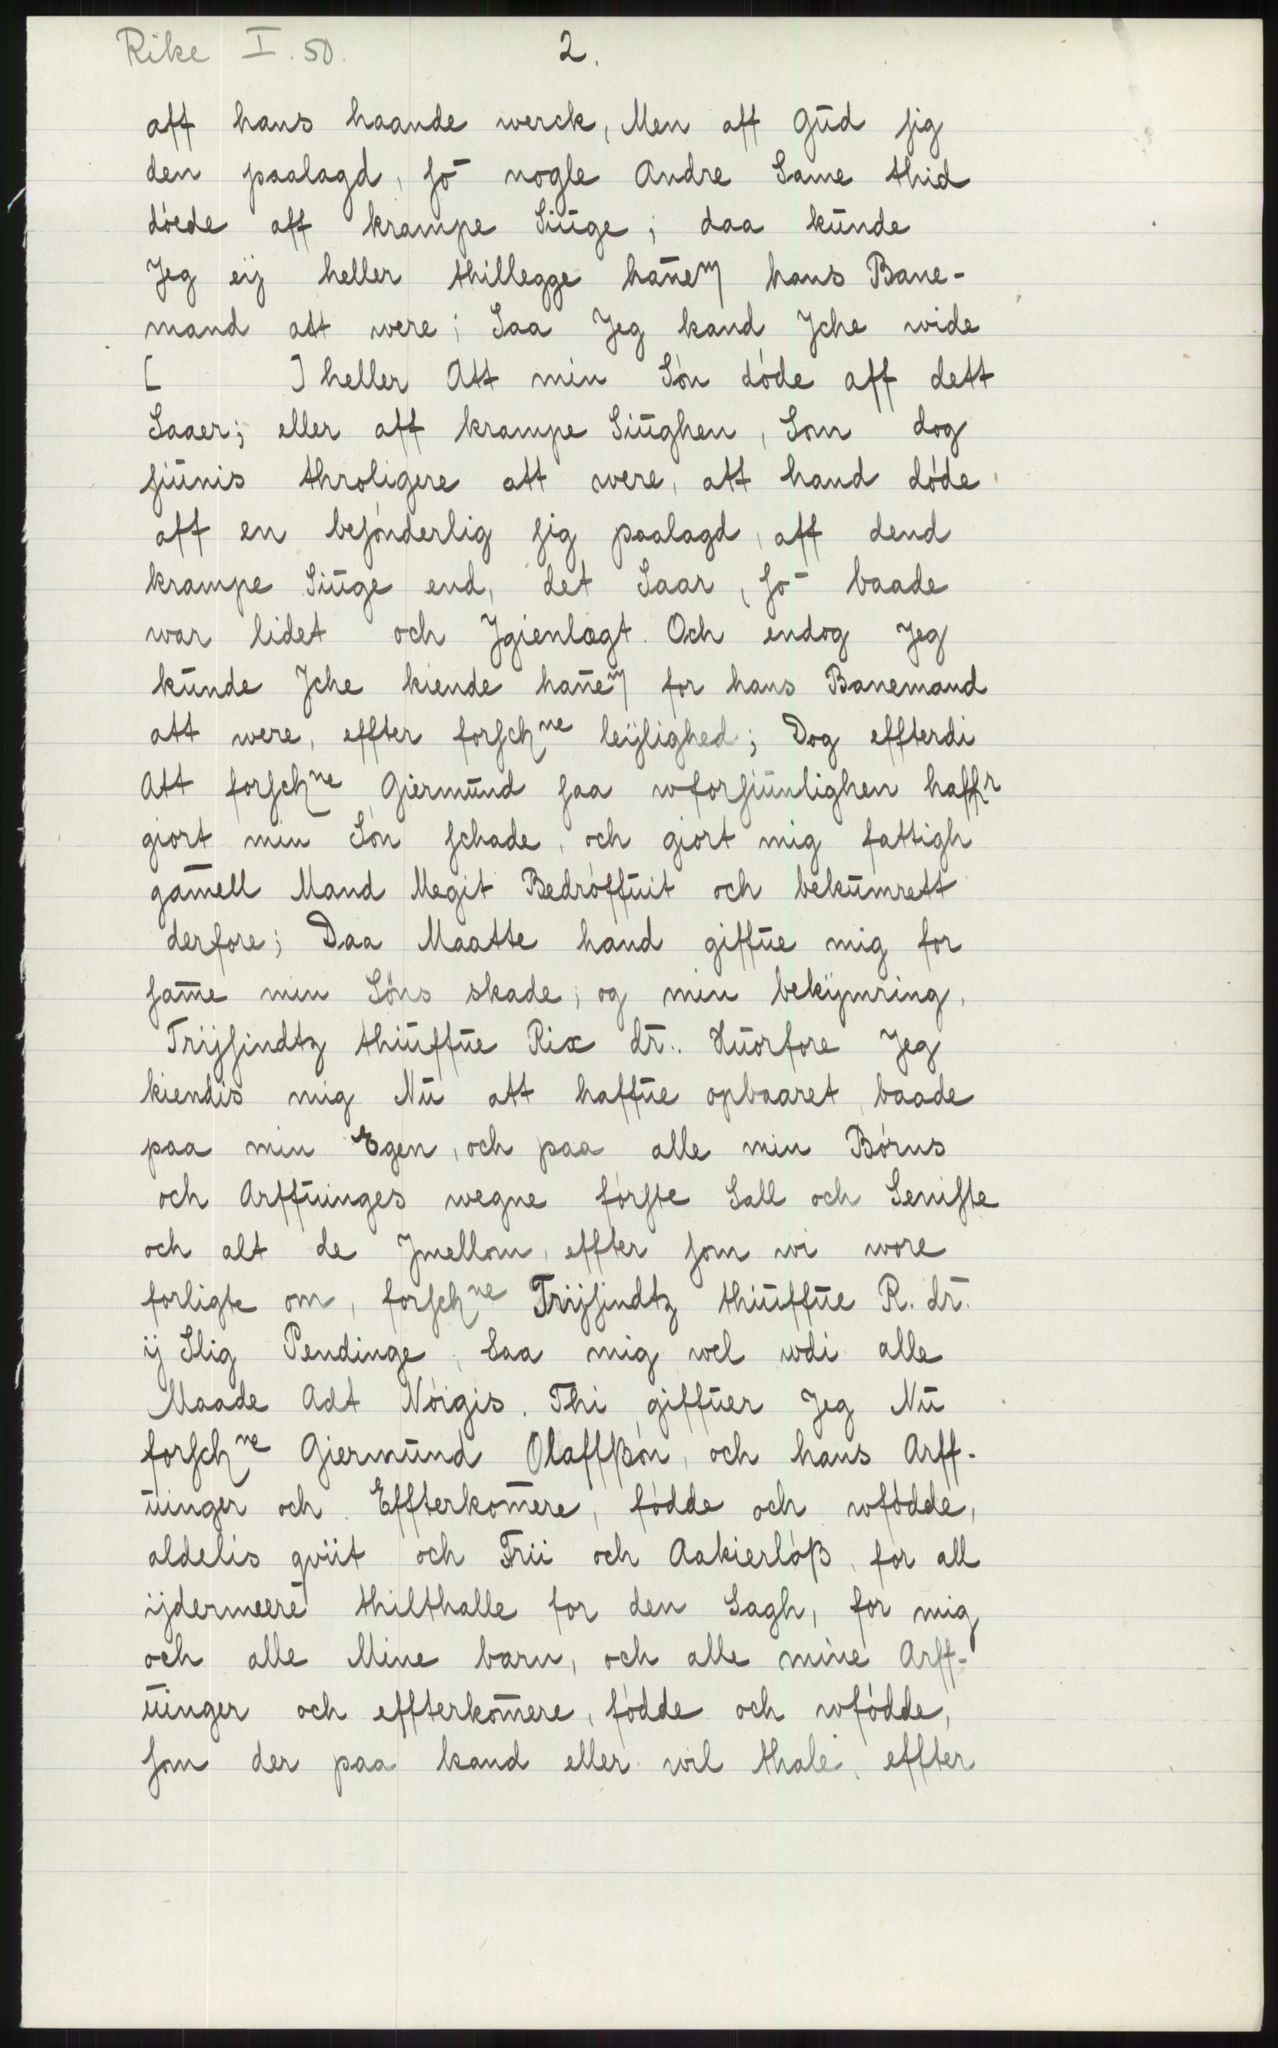 Rike I. 50. 2.
aff hans haande werck, Men aff Gud sig
den paalagd, so̅ nogle Andre Same thid
dóede aff krampe Siuge; daa kunde
Jeg eij heller thillegge han̅em hans Bane-
mand att were; Saa Jeg kand Jche wide
[ ] heller Att min Són dóde aff dett
Saaer; eller aff krampe Siughen, Som dog
siunis throligere att were, att hand dóde
aff en besónderlig sig paalagd, aff dend
krampe Siuge end, det Saar, so̅ baade
war lidet och Jgienlægt. Och endog Jeg
kunde Jche kiende han̅em for hans Banemand
att were, effter forschne leijlighed; Dog effterdi
Att forschne Giermund saa wforsiunlighen haffr
giort min Són schade, och giort mig fattigh
gam̅ell Mand Megit Bedróffuit och bekumrett
derfore; Daa Maatte hand giffue mig for
sam̅e min Sóns skade; og min bekijmring,
Trijsindtz thiuffue Rix dr. Huorfore Jeg
kiendis mig Nu att haffue opbaaret baade
paa min Egen, och paa alle min Bórns
och Arffuinges wegne fórste Sall och Seniste
och alt de Jmellom, effter som wi wore
forligte om, forschne Trijsindtz thiuffue R. dr.
ij Slig Pendinge, Saa mig wel wdi alle
Maade Adt Nóigis. Thi giffuer Jeg Nu
forschne Giermund Olaffßón, och hans Arff-
uinger och Effterkom̅ere, fódde och wfódde,
aldelis qviit och Frii och Aakierlóß, for all
ijdermeere thilthalle for den Sagh, for mig
och alle Mine barn, och alle mine Arff-
uinger och effterkom̅ere, fódde och wfódde,
som der paa kand eller wil thale, effter